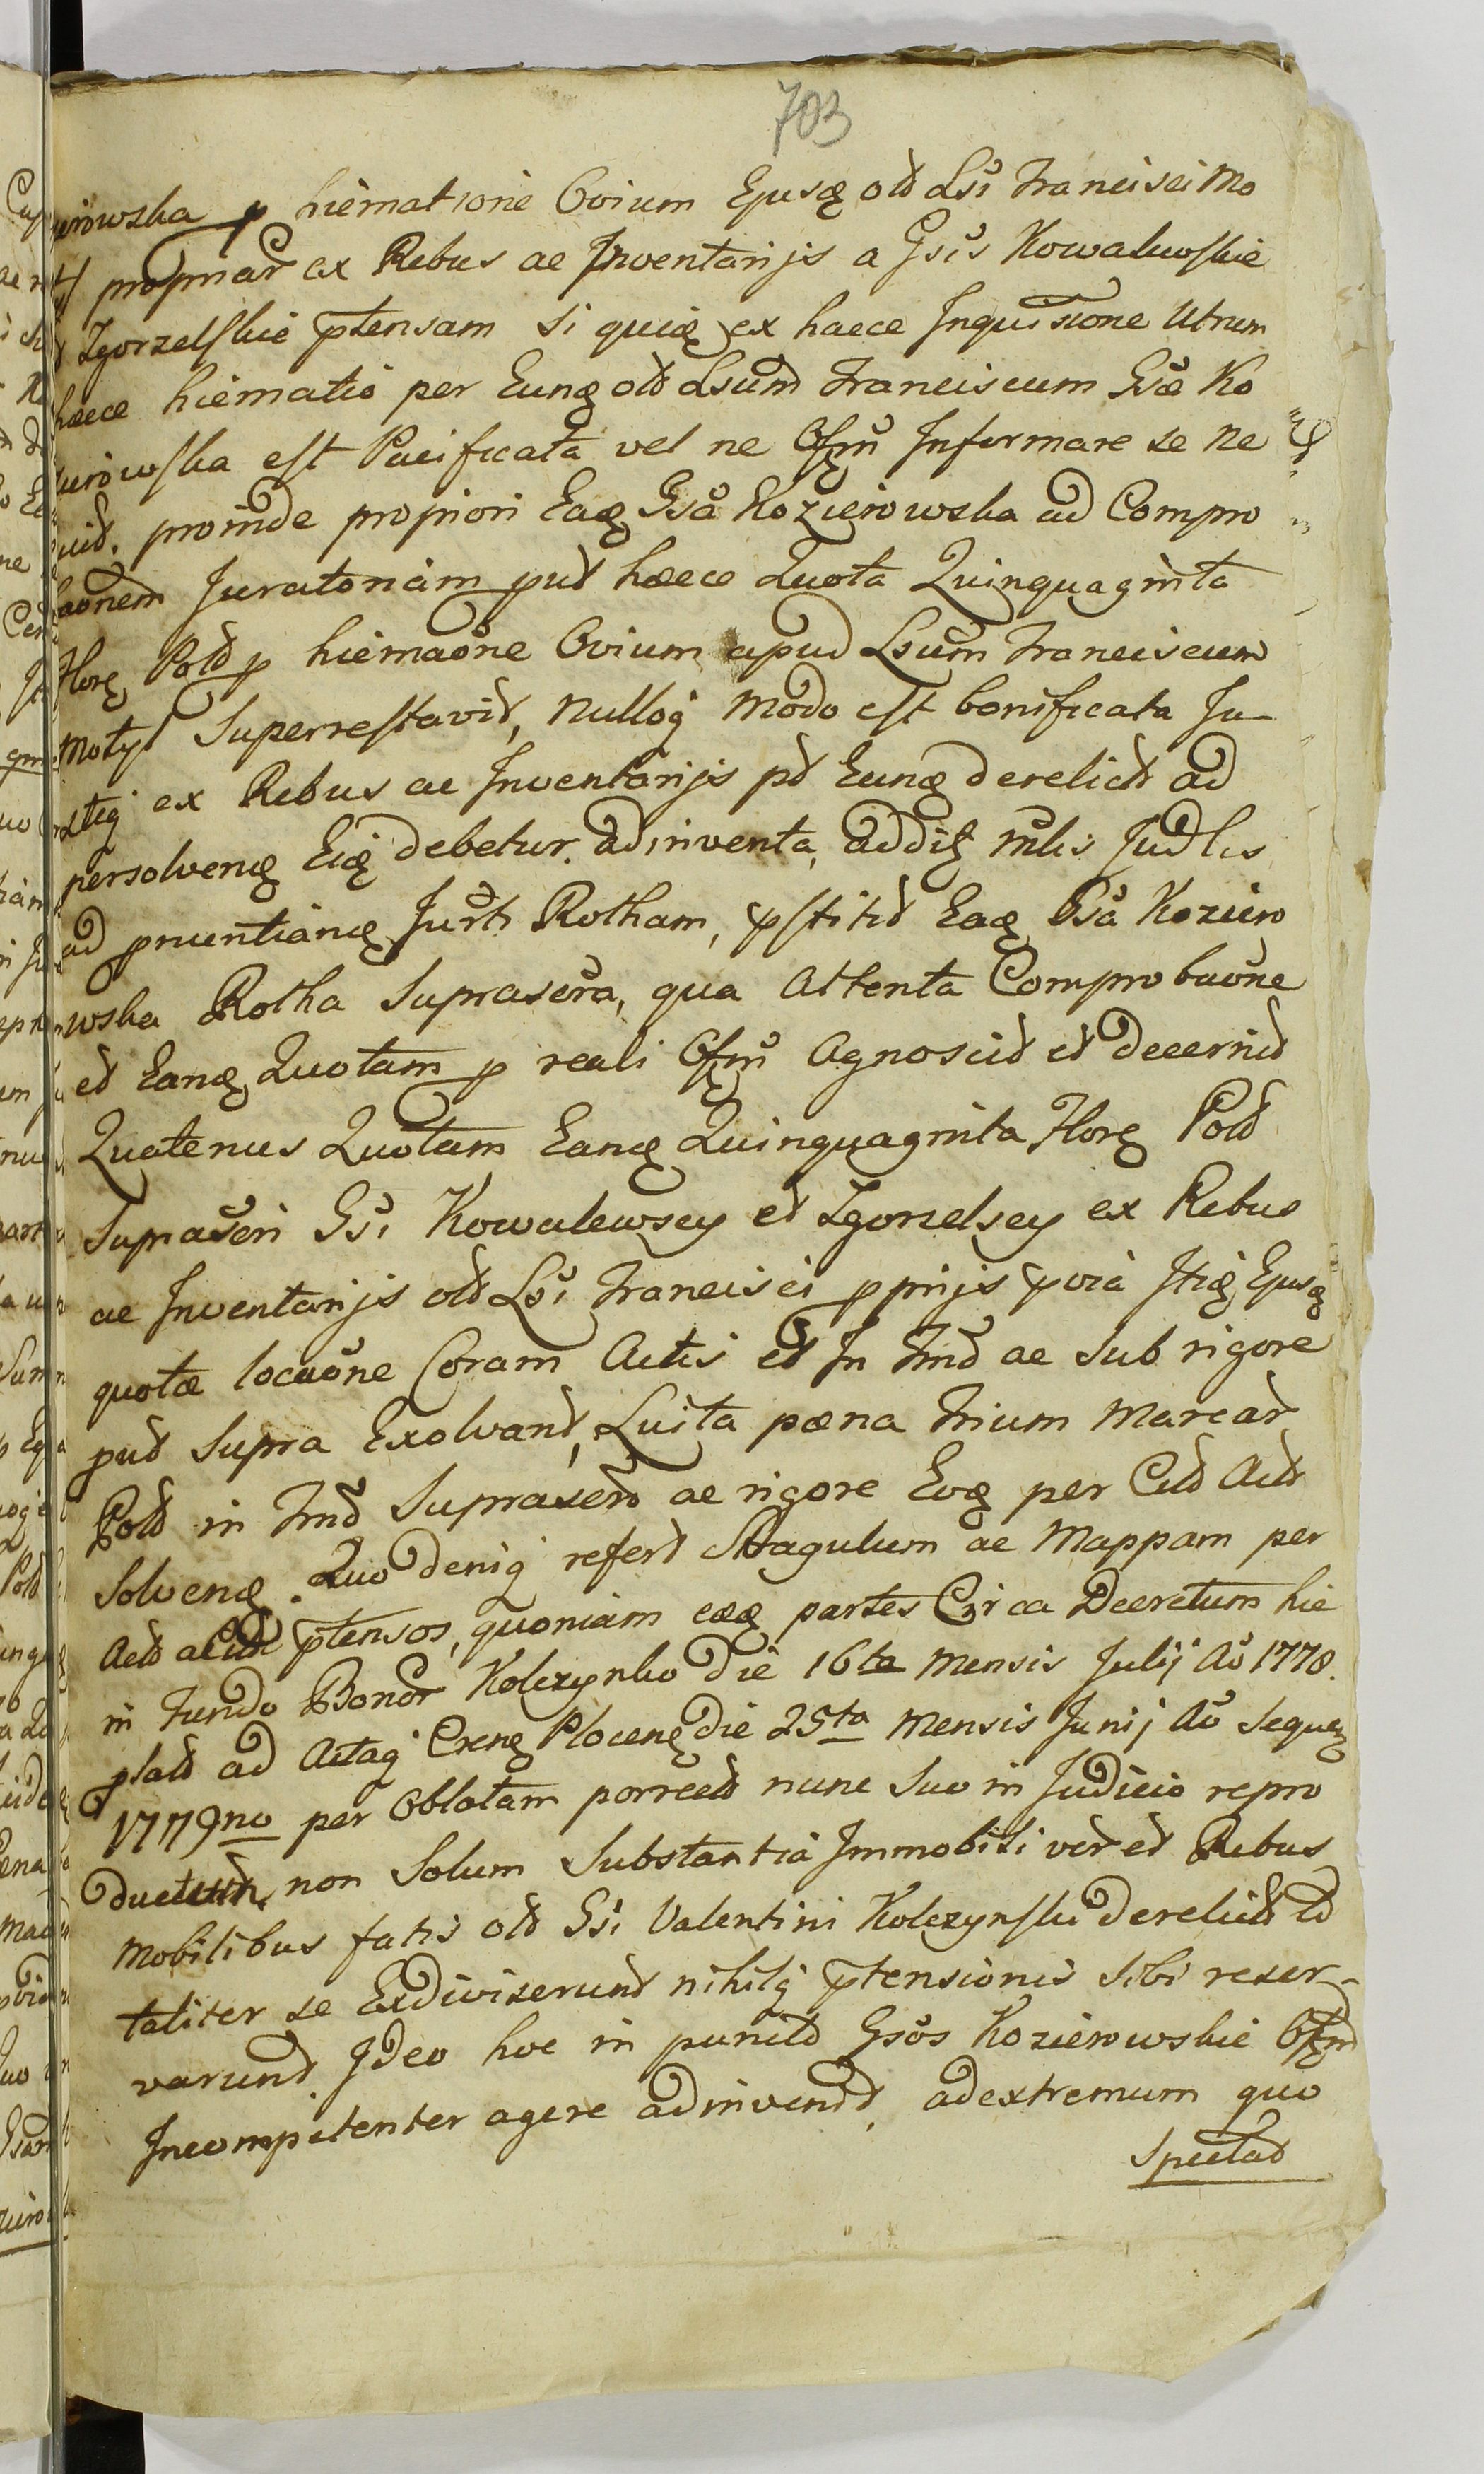 703
erowska p hiematione Ovium Ejusq old Lsi Francisci Mo
propriar ex Rebus ac Inventarijs a Gsis Kowalewskie
Zgorzelskie ptensam si quiq ex haece Inquisione Utrum
haece hiematio per Eunq old Lsum Franciscum Gsæ Ko
zierowska est Pacificata vel ne Offm Informare se ne
quid. proinde propiori Eaq Gsa Kozierowska ad Compro
baonem Juratoriam pud haece Quota Quinquaginta
Flor Pold p hiemaone Ovium apud Lsum Franciscum
Motyl Superrestavid, nulloq modo est bonificata Ju-
stiq ex Rebus ac Inventarijs pd Eunq derelict ad
persolvenq Eiq debetur. adinventa, addiq mlis Judlis
ad pnuntianq Jurti Rotham, pstitid Eaq Gsa Koziero
wska Rotha Suprascra, qua Attenta Comprobaone
ed Eanq Quotam p reali Offm Agnoscid ed decernid
Quatenus Quotam Eanq Quinquaginta Flor Pold
Suprascri Gsi Kowalewscy ed Zgorzelscy ex Rebus
ac Inventarijs old Lsi Francisci pprijs pvia Jtiq Ejusq
quotæ locaone Coram Actis ed In Fnd ac Sub rigore
pud Supra Exolvand, Luita pæna trium Marcar
Pold in Fnd Suprascro ac rigore Eoq per Cid Acid
Solvenq. Quo deniq referd Stragulum ac Mappam per
Acid a Cid ptensos, quoniam eæq partes Circa Decretum hic
in Fundo Bonor Kolczynko die 16ta Mensis Julij Ao 1778.
plad ad Actaq Crenq Plocenq die 25ta Mensis Junij Ao Sequen
1779no per Oblatam porrecd nunc Suo in Judicio repro
ductum, non Solum Substantia Immobili ver ed Rebus
Mobilibus fatis old Gsi Valentini Kolczynski derelict td
taliter se Exdiviserund nihilq ptensionis Sibi reser-
varund Ideo hoc in punctd Gsos Kozierowskie Offm
Incompetenter agere adinvenid, ad extremum quo
Spectad